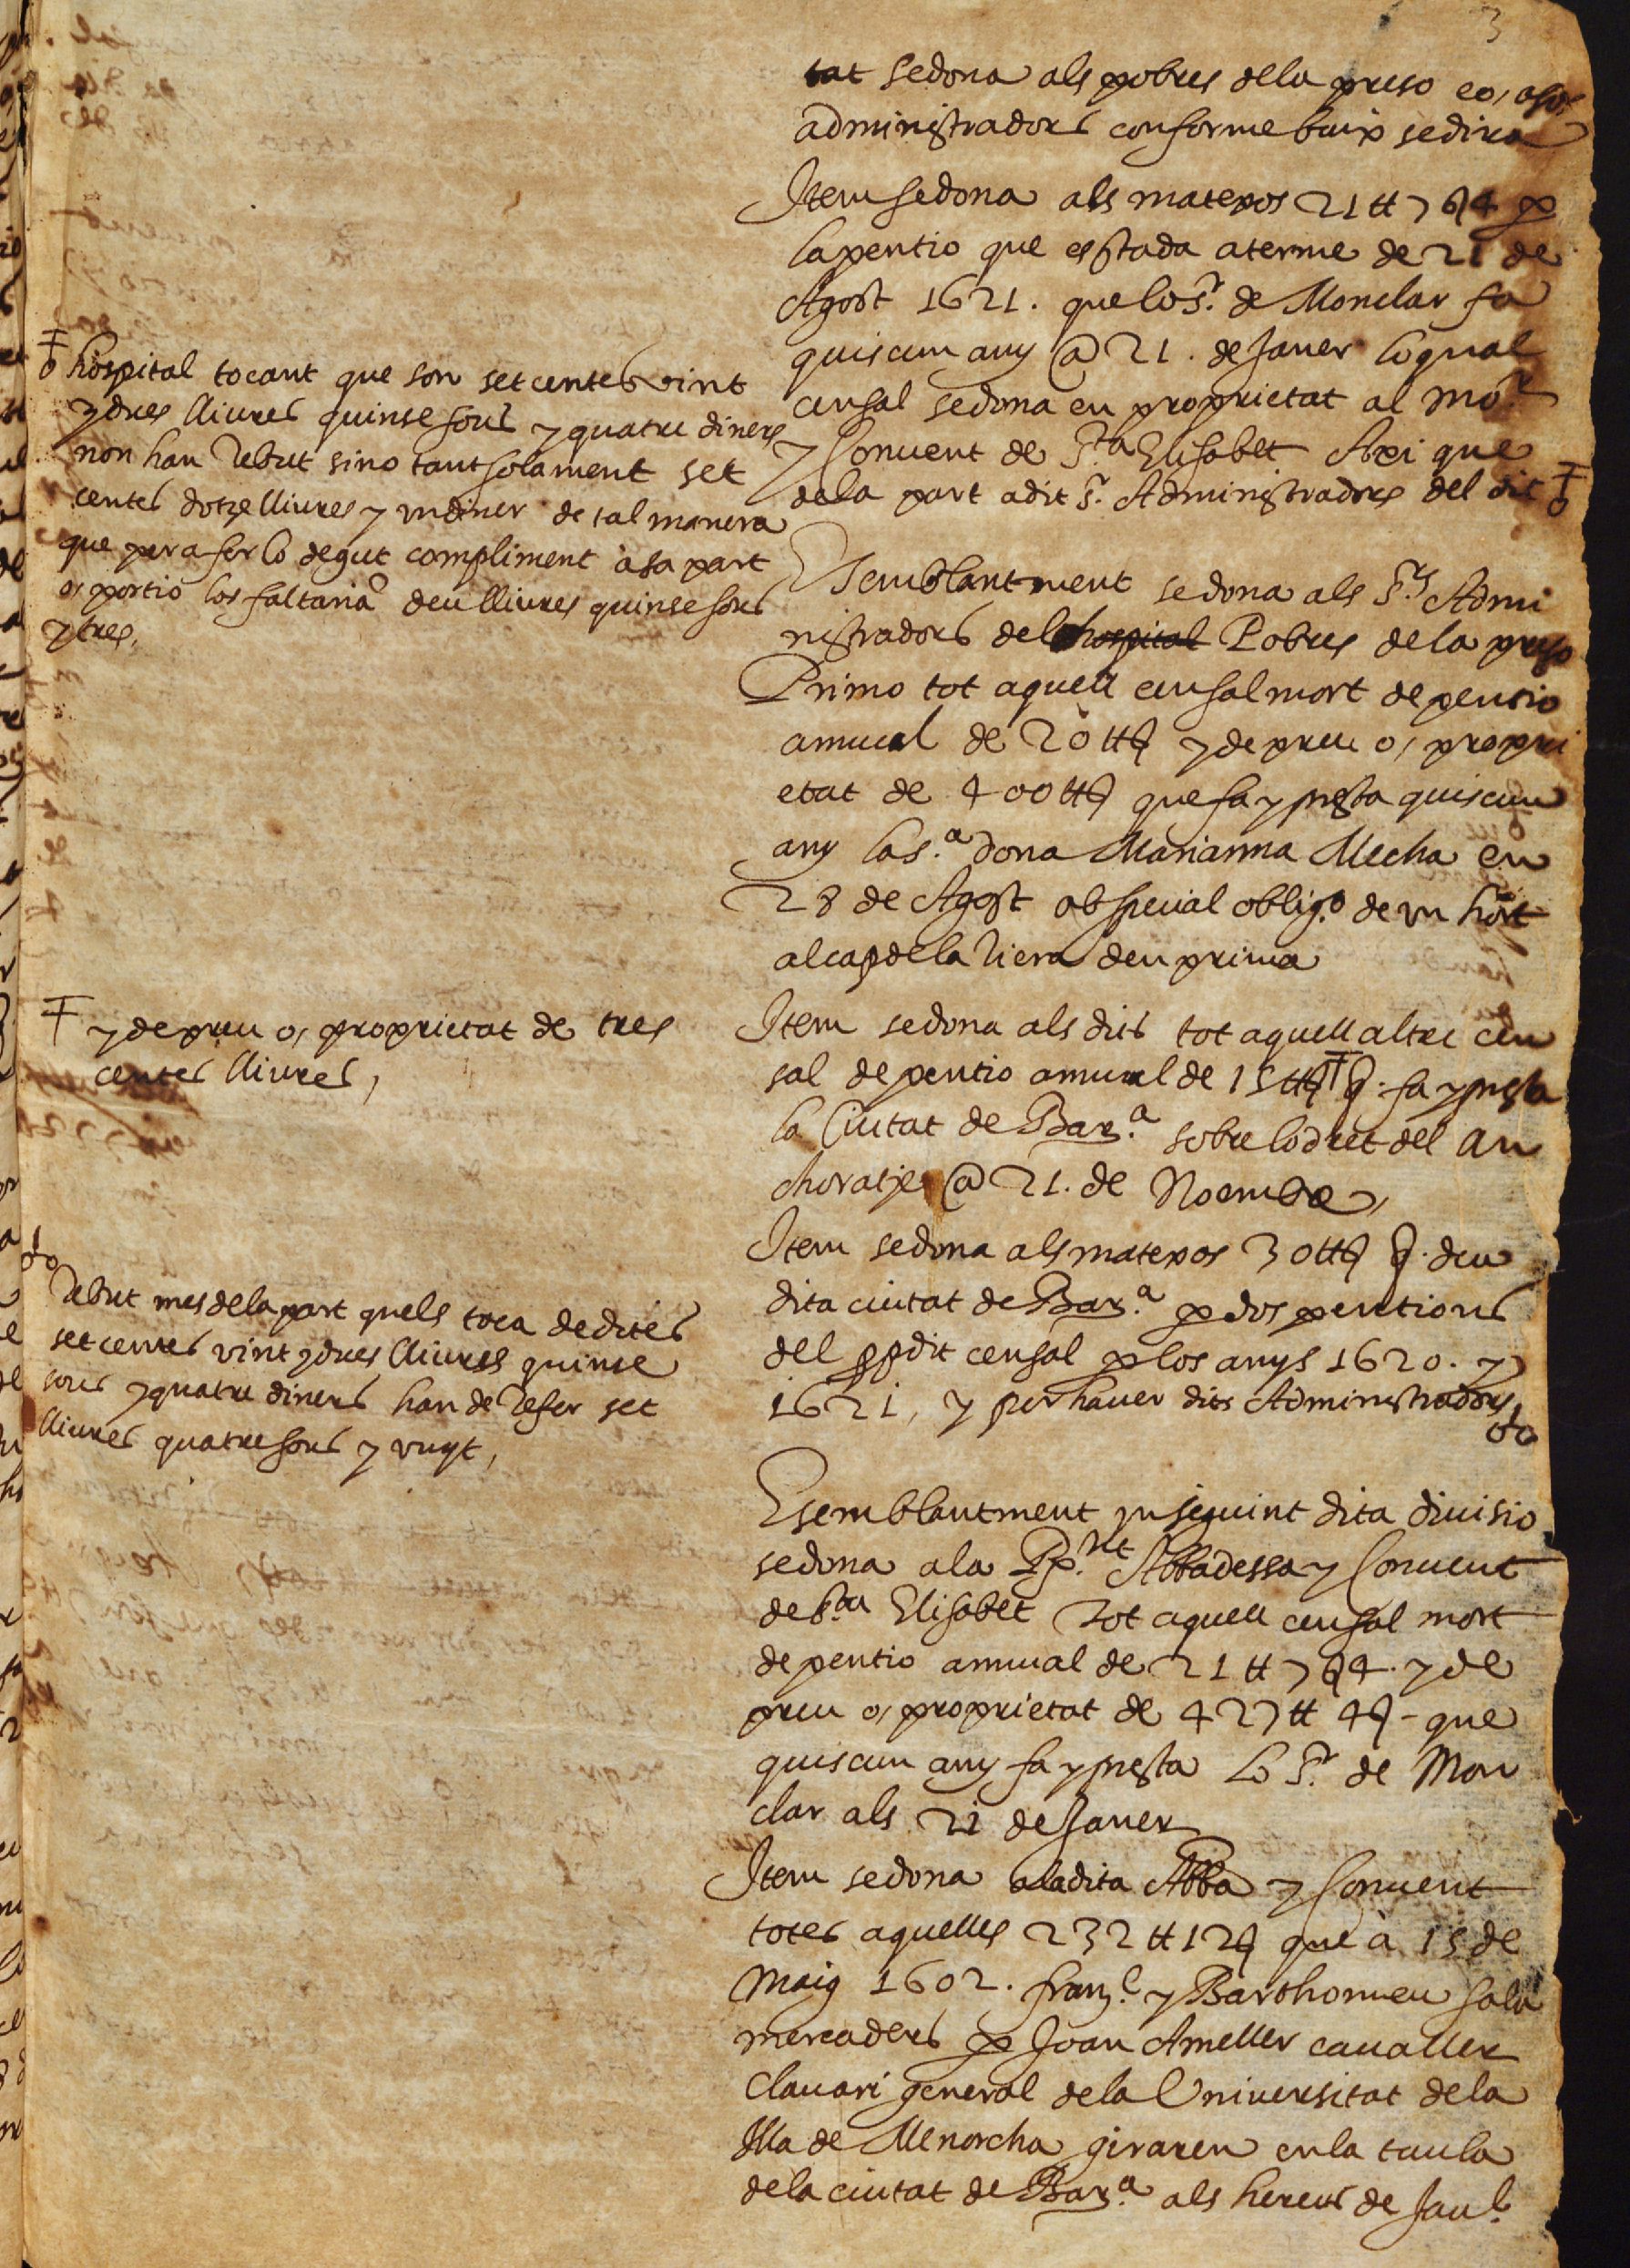 3
tat se dona als pobres de la preso eo, asos
administradors conforme baix se dira
Item se dona als matexos 21 ℔ 7 ẞ 4 p
la pentio que es stada a terme de 21 de
Agost 1621. que lo Sr. de Monclar fa
quiscun any @ 21. de Janer lo qual
censal se dona en proprietat al mor.
y Conuent de Sta Elisabet Axi que
de la part a dit Sr. Administradors del dit
hospital tocant que son setcentes vint
y dues lliures quinse sous y quatre diners
non han rebut sino tant solament set
centes dotze lliures y un diner de tal manera
que pera fer lo degut compliment a sa part
o, portio los faltaria deu lliures quinse sous
y tres,
E semblantment se dona als Srs Admi
nistradors del hospital Pobres de la preso
Primo tot aquell censal mort de pentio
annual de 20 ℔ ẞ y de preu o, propri
etat de 400 ℔ ẞ que fa y presta quiscun
any la S.a dona Marianna Mecha en
28 de Agost ob special obligo de un hort
al cap de la riera den prima
Item se dona als dits tot aquell altre cen
sal de pentio annual de 15 ℔ ẞ q. fa y presta
y de preu o, proprietat de tres
centes lliures,
la Ciutat de Bar.a sobre lo dret del an
choratje @ 21. de Noembre,
Item se dona als matexos 30 ℔ ẞ q. deu
dita ciutat de Bar.a p dos pentions
del ppdit censal p los anys 1620. y
1621, y per hauer dits Administradors
rebut mes de la part quels toca de dites
setcentes vint y dues lliures quinse
sous y quatre diners han de refer set
lliures quatre sous y vuyt,
E semblantment inseguint dita diuisio
se dona a la Rx.nt Abbadessa y Conuent
de Sta Elisabet tot aquell censal mort
de pentio annual de 21 ℔ 7 ẞ 4. y de
preu o, proprietat de 427 ℔ 4 ẞ - que
quiscun any fa y presta lo Sr. de Mon
clar als 21 de Janer
Item se dona a la dita Abba y Conuent
totes aquelles 232 ℔ 12 ẞ que à 15 de
Maig 1602. franc.l y Barthomeu Sala
mercaders p Joan Ameller caualler
Clauari general de la Uniuersitat de la
Illa de Menorcha giraren en la taula
de la ciutat de Bar.a als hereus de Jau.l